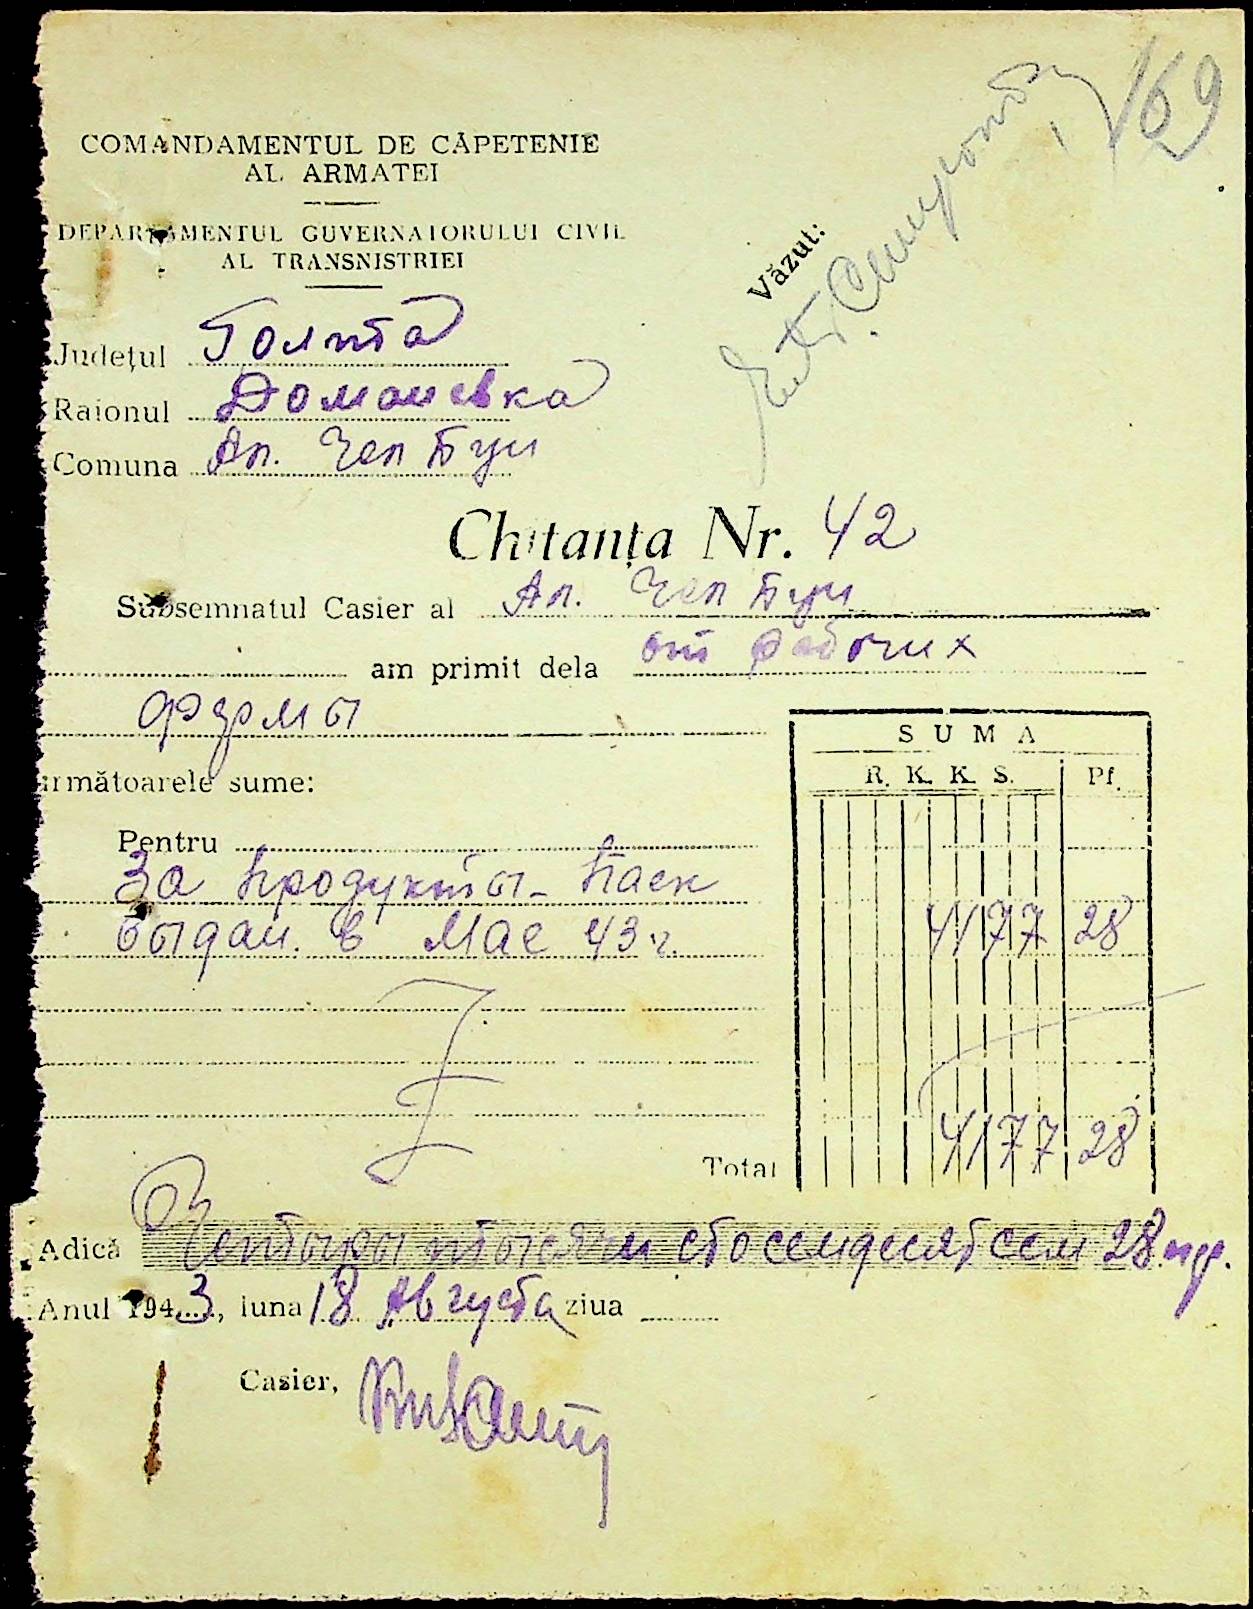 169
COMANDAMENTUL DE CĂPETENIE
AL ARMATEI
DEPARTAMENTUL GUVERNATORULUI CIVIL
AL TRANSNISTRIEI
Văzut:
Județul Голта
Raionul Доманевка
Comuna Ап.
Chitanța Nr. 42
Subsemnatul Casier al Ап.
am primit dela от рабочих
фермы
următoarele sume:
SUMA
R. K. K. S. Pf.
Pentru
За продукты - паек
выдан. в Мае 43 г. 4177 28
Total 4177 28
Adică Четыры тысячи сто семдесят сем 28 пф.
Anul 1943, luna 18 Августа ziua
Casier,